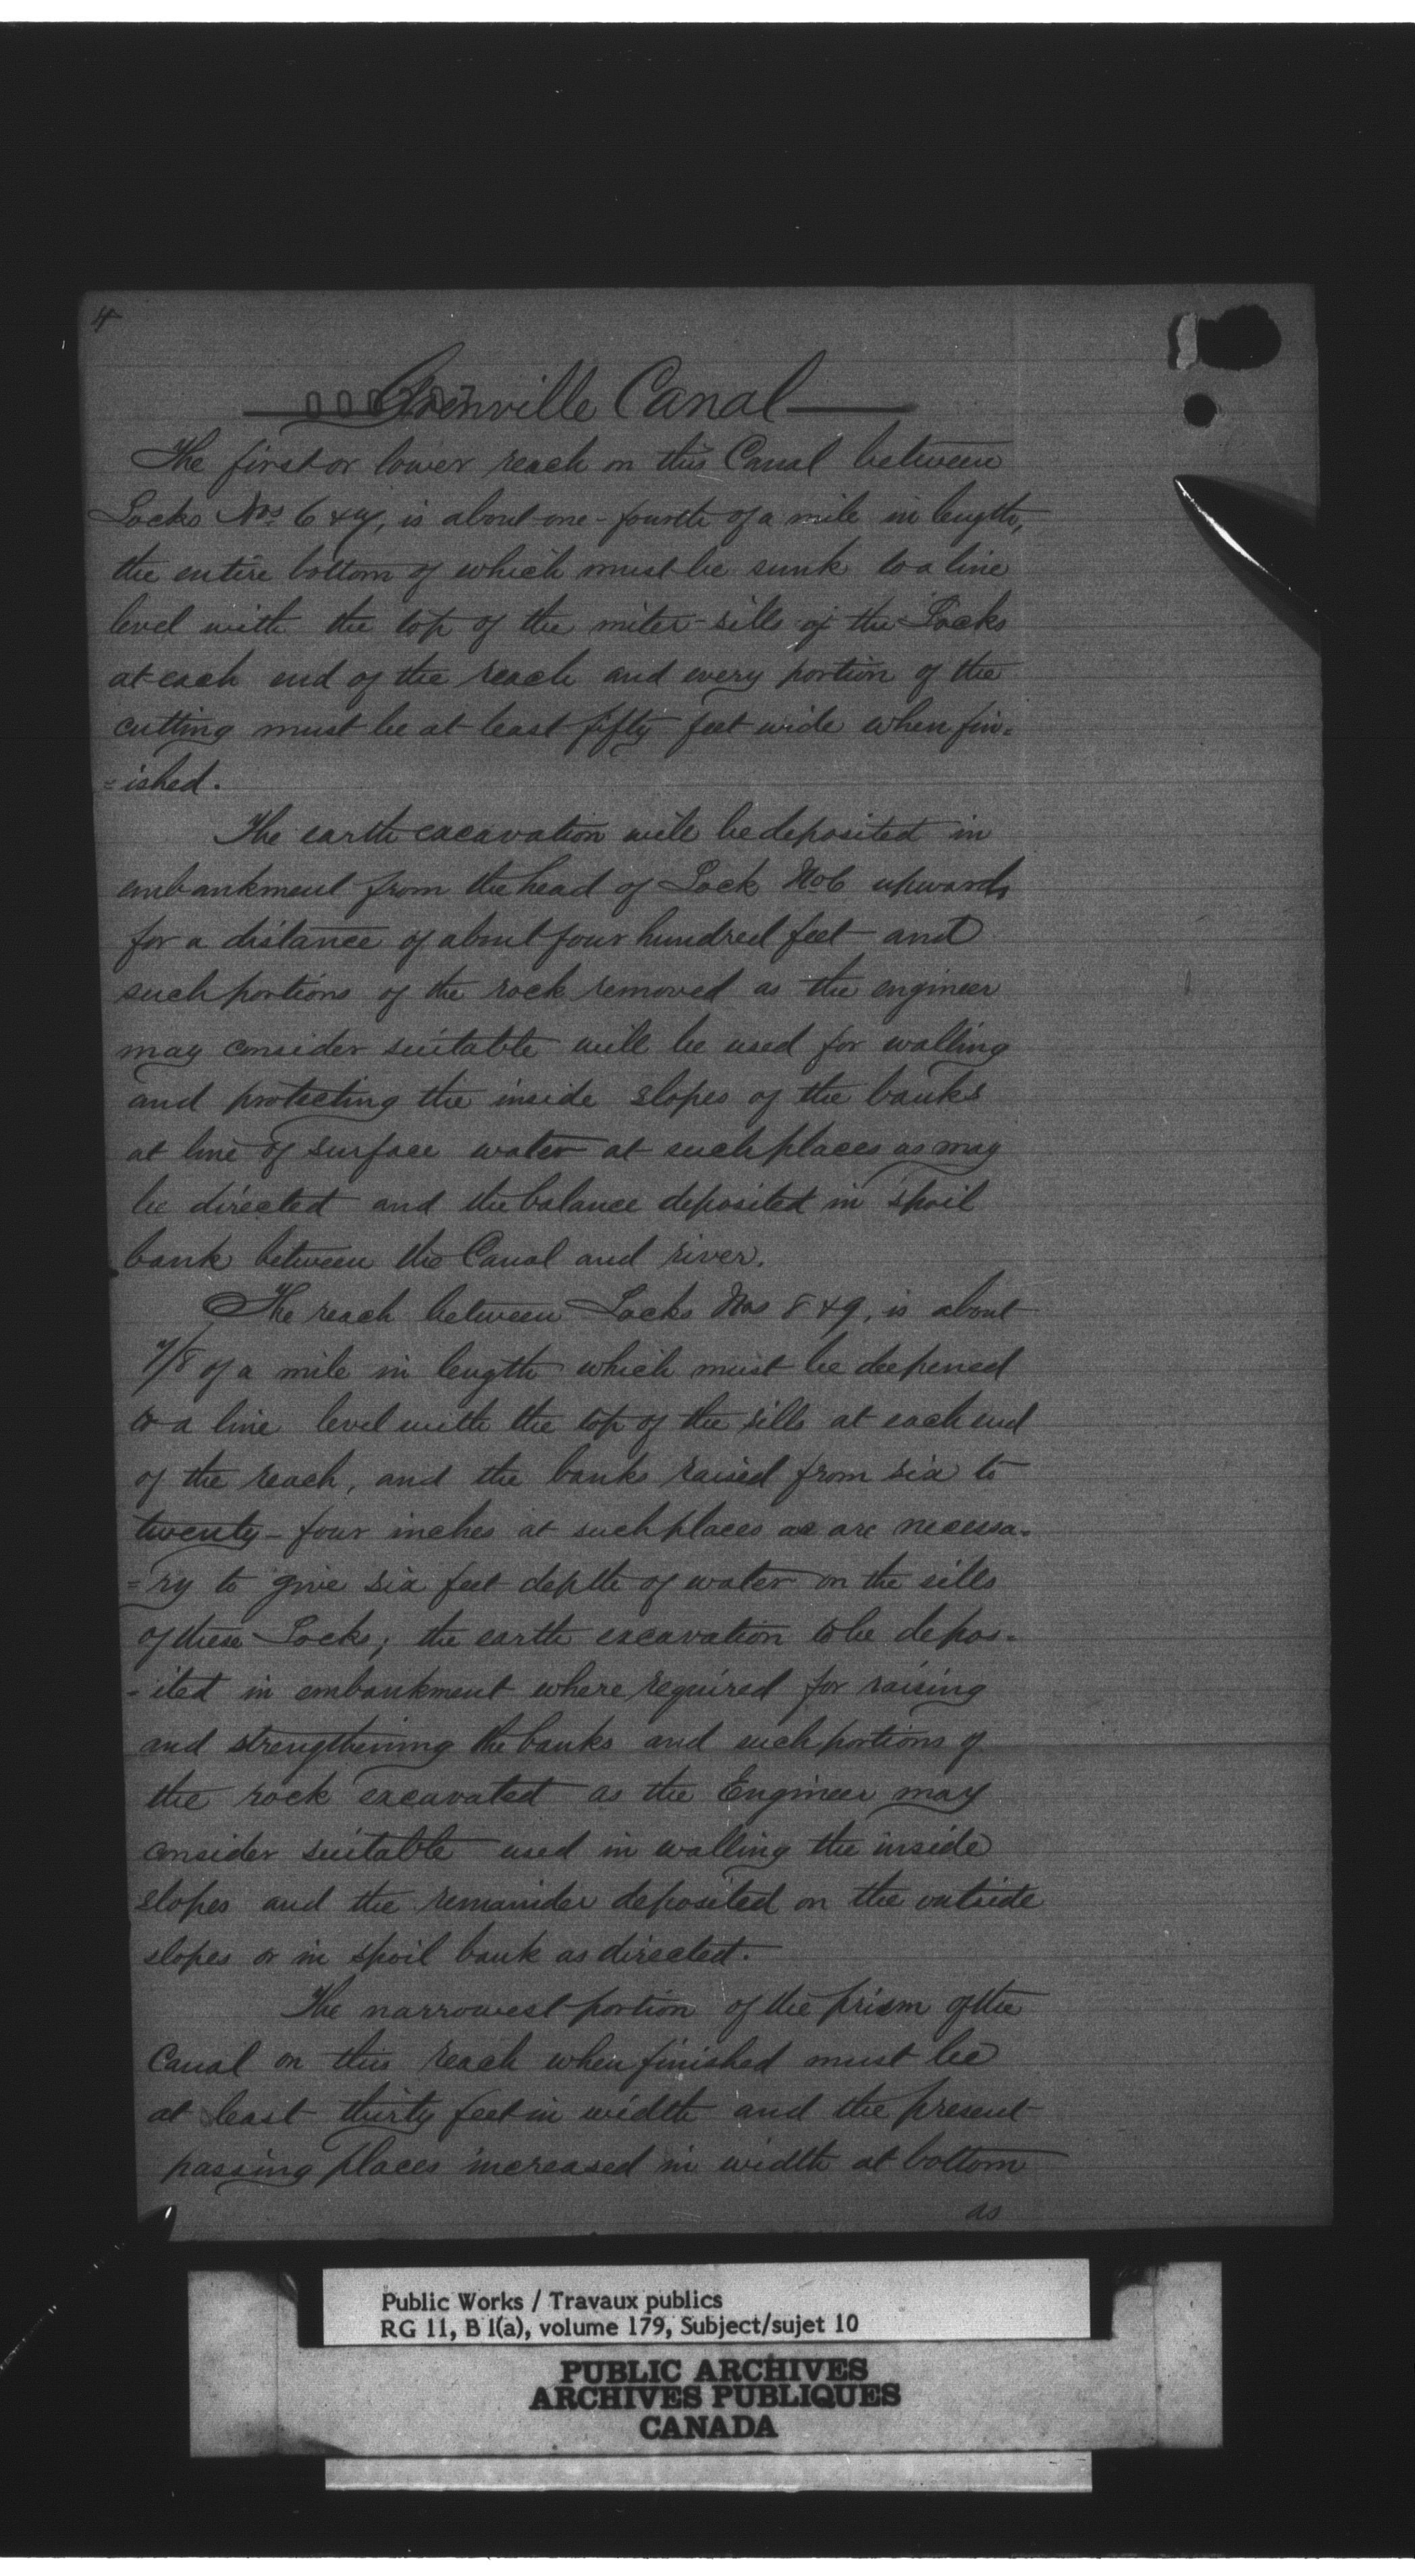 4
Grenville Canal
The first or lower reach on this Canal between
Locks Nos 6 & 7, is about one-fourth of a mile in length,
the entire bottom of which must be sunk to a line
level with the top of the miter-sills of the Locks
at each end of the reach and every portion of the
cutting must be at least fifty feet wide when fin=
=ished.
The earth excavation will be deposited in
embankment from the head of Lock No 6 upwards
for a distance of about four hundred feet and
such portions of the rock removed as the engineer
may consider suitable will be used for walling
and protecting the inside slopes of the banks
at line of surface water at such places as may
be directed and the balance deposited in spoil
bank between the Canal and river.
The reach between Locks Nos 8 & 9, is about
7/8 of a mile in length which must be deepened
to a line level with the top of the sills at each end
of the reach, and the banks raised from six to
twenty-four inches at such places as are necessa=
=ry to give six feet depth of water on the sills
of these Locks; the earth excavation to be depos=
-ited in embankment where required for raising
and strengthening the banks and such portions of
the rock excavated as the Engineer may
consider suitable used in walling the inside
slopes and the remainder deposited on the outside
slopes or in spoil bank as directed.
The narrowest portion of the prism of the
Canal on this reach when finished must be
at least thirty feet in width and the present
passing places increased in width at bottom
as
Public Works / Travaux publics
RG 11, B 1(a), volume 179, Subject/sujet 10
PUBLIC ARCHIVES
ARCHIVES PUBLIQUES
CANADA